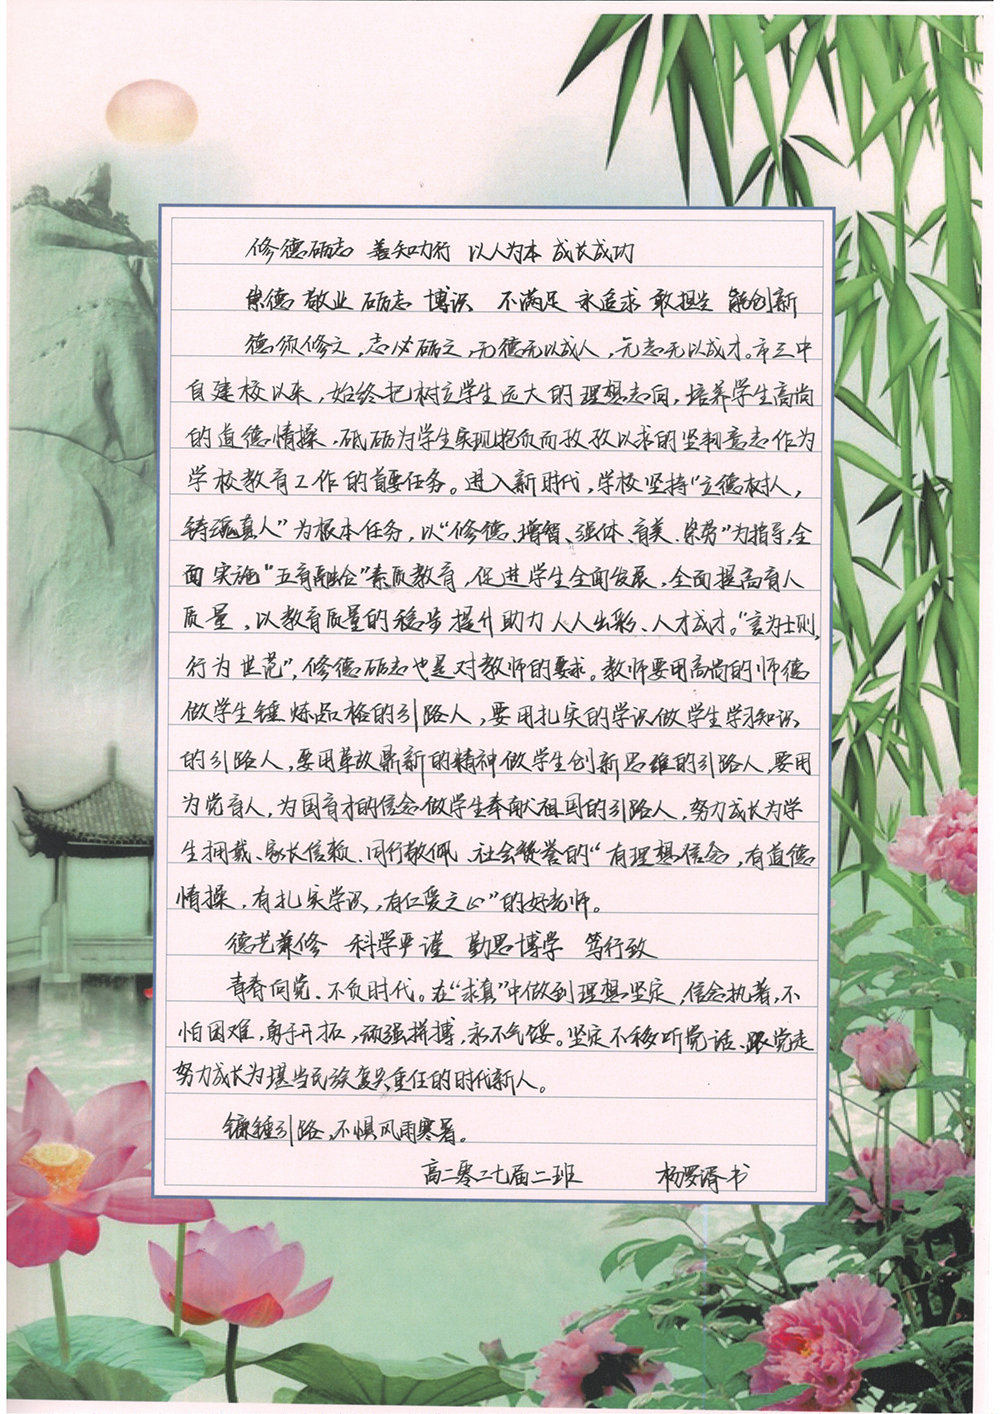 修德砺志 善知力行 以人为本 成长成功
崇德 敬业 砺志 博识 不满足 永追求 敢担当 能创新
德须修立,志必砺之,无德无以成人,无志无以成才。市三中
自建校以来,始终把树立学生远大的理想志向,培养学生高尚
的道德情操,砥砺为学生实现抱负而孜孜以求的坚韧意志作为
学校教育工作的首要任务。进入新时代,学校坚持“立德树人,
铸魂真人”为根本任务,以“修德、增智、强体、育美、崇劳”为指导,全
面实施“五育融合”素质教育,促进学生全面发展,全面提高育人
质量,以教育质量的稳步提升助力人人出彩、人才成才。“言为士则,
行为世范”,修德砺志也是对教师的要求。教师要用高尚的师德
做学生锤炼品格的引路人,要用扎实的学识做学生学习知识
的引路人,要用革故鼎新的精神做学生创新思维的引路人,要用
为党育人,为国育才的信念做学生奉献祖国的引路人,努力成长为学
生拥戴、家长信赖、同行敬佩、社会赞誉的“有理想信念,有道德
情操,有扎实学识,有仁爱之心”的好老师。
德艺兼修 科学严谨 勤思博学 笃行致
青春向党、不负时代。在“求真”中做到理想坚定,信念执著,不
怕困难,勇于开拓,顽强拼搏,永不气馁。坚定不移听党话、跟党走
努力成长为堪当民族复兴重任的时代新人。
镰锤引路,不惧风雨寒暑。
高二零二七届二班 杨罗书